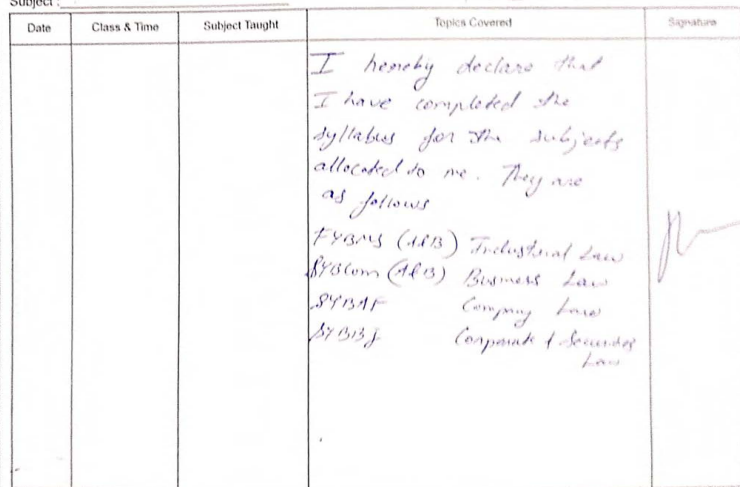 Subject :
Date Class & Time Subject Taught Topics Covered Signature
I hereby declare that
I have completed the
syllabus for the subjects
allocated to me. They are
as follows
FYBMS (A&B) Industrial Law
SYBCom (A&B) Business Law
SYBAF Company Law
SYBBI Corporate & Securities
Law